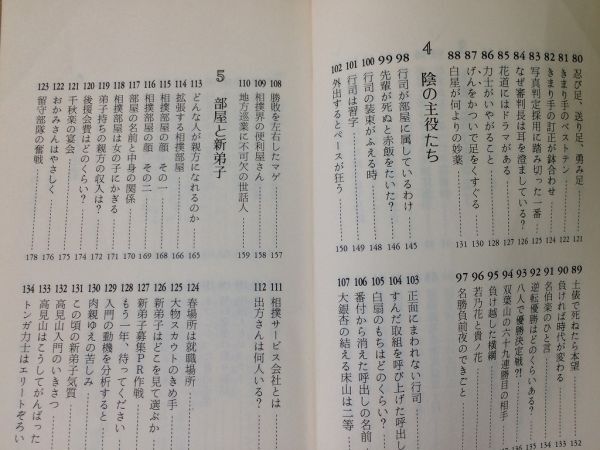 80 忍び足、送り足、勇み足……121
81 きまり手のベストテン……122
82 きまり手の訂正が鉢合わせ……122
83 写真判定採用に踏み切った一番……124
84 なぜ審判長は耳を澄ましている?……126
85 花道にはドラマがある……127
86 力士がいやがること……128
87 げんをかついで足をくすぐる……130
88 白星が何よりの妙薬……131
89 土俵で死ねたら本望
90 負ければ時代が変わる
91 名伯楽のひと言
92 逆転優勝はどのくらいある?
93 八人で優勝決定戦?!
94 双葉山の六十九連勝目の相手
95 負け越した横綱
96 若乃花と貴ノ花
97 名勝負前夜のできごと
4 陰の主役たち
98 行司が部屋に属しているわけ……145
99 先輩が死ぬと赤飯をたいた?……146
100 行司の装束がふえる時……148
101 行司は習字……149
102 外出するとペースが狂う……150
103 正面にまわれない行司
104 すんだ取組を呼び上げた呼出し
105 白扇のもちはどのくらい?
106 番付から消えた呼出しの名前
107 大銀杏の結える床山は二等
108 勝敗を左右したマゲ……157
109 相撲界の便利屋さん……158
110 地方巡業に不可欠の世話人……159
111 相撲サービス会社とは
112 出方さんは何人いる?
5 部屋と新弟子
113 どんな人が親方になれるのか……165
114 拡張する相撲部屋……166
115 相撲部屋の顔 その一……166
116 相撲部屋の顔 その二……168
117 部屋の名前と中身の関係……169
118 相撲部屋は女の子にかぎる……170
119 弟子持ちの親方の収入は?……171
120 後援会費はどのくらい?……172
121 千秋楽の宴会……174
122 おかみさんはやさしく……176
123 留守部隊の奮戦……178
124 春場所は就職場所
125 大物スカウトのきめ手
126 新弟子はどこを見て選ぶか
127 新弟子募集PR作戦
128 もう一年、待ってください
129 入門の動機を分析すると
130 肉親ゆえの苦しみ
131 この頃の新弟子気質
132 高見山入門のいきさつ
133 高見山はこうしてがんばった
134 トンガ力士はエリートぞろい